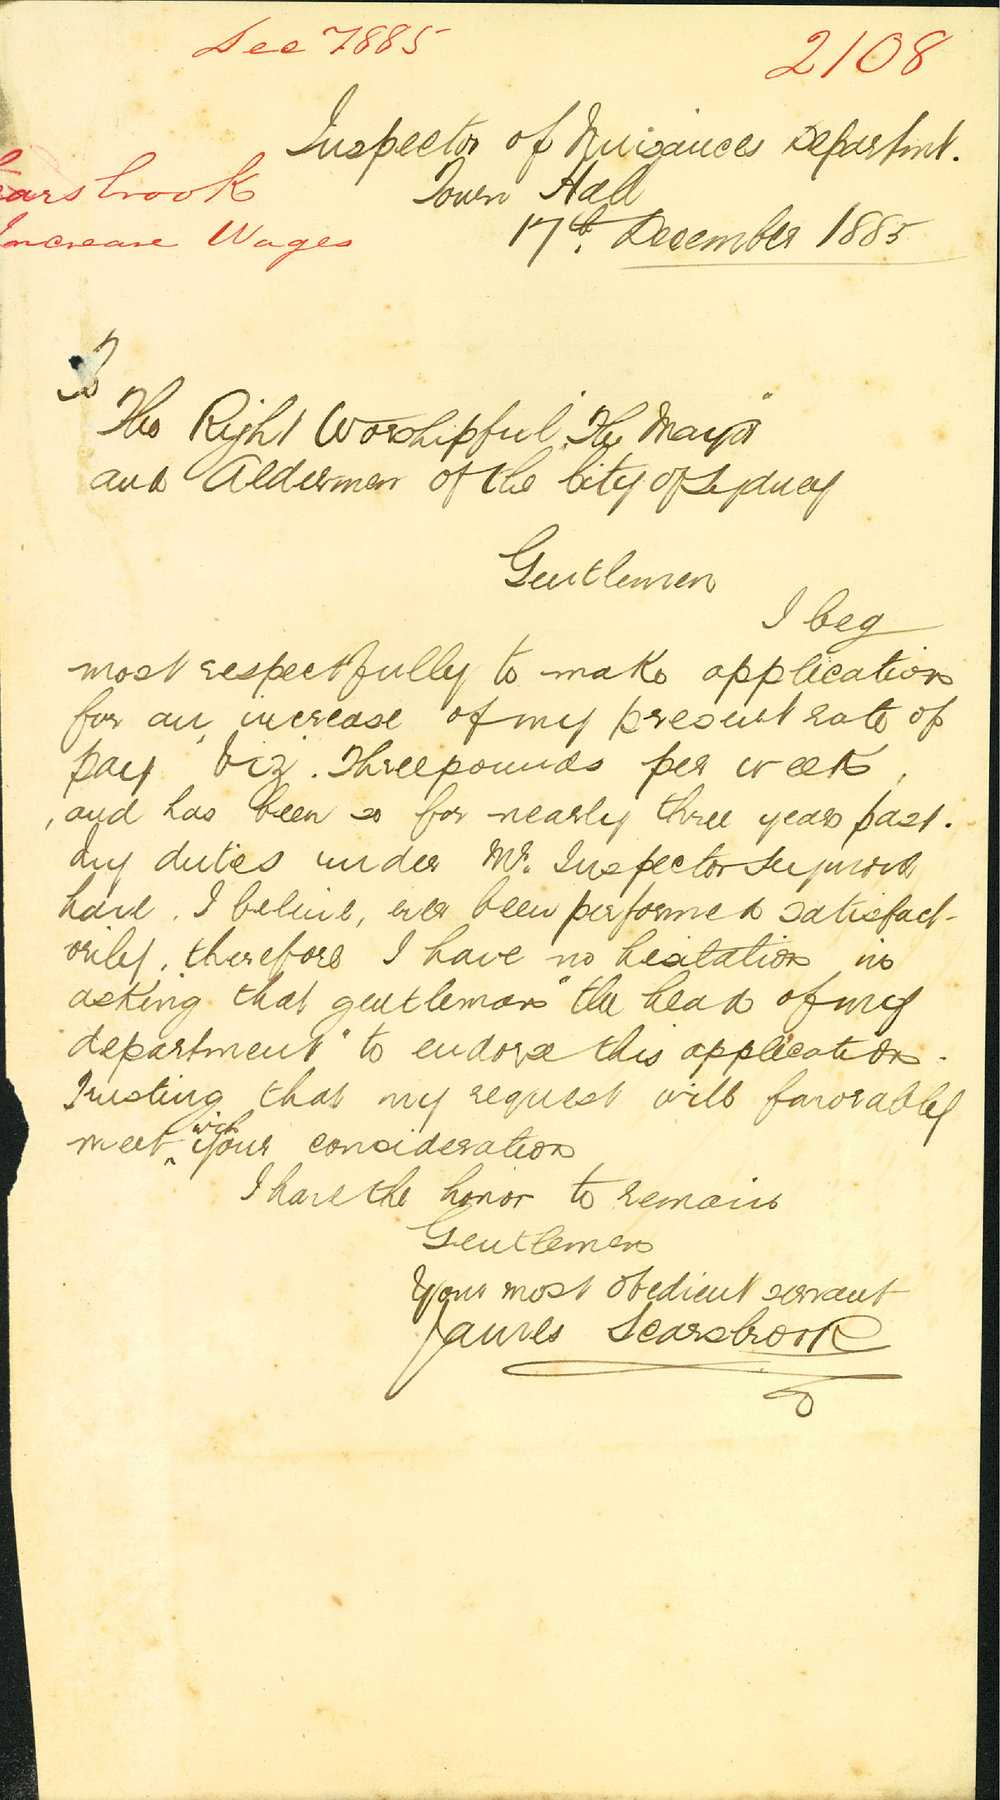 See 7885
2108
Inspector of Nuisances Departmt.
Town Hall
17th. December 1885
earsbrook
Increase Wages
To
The Right Worshipful "The Mayor"
and Aldermen of the City of Sydney
Gentlemen
I beg
most respectfully to make application
for an increase of my present rate of
pay viz. Three pounds per week,
, and has been so for nearly three years past.
My duties under Mr. Inspector Seymour
have, I believe, ever been performed satisfact-
orily, therefore I have no hesitation in
asking that gentleman "the head of my
department" to endorse this application.
Trusting that my request will favorably
meet with your consideration
I have the honor to remain
Gentlemen
Your most obedient servant
James Scarsbrook